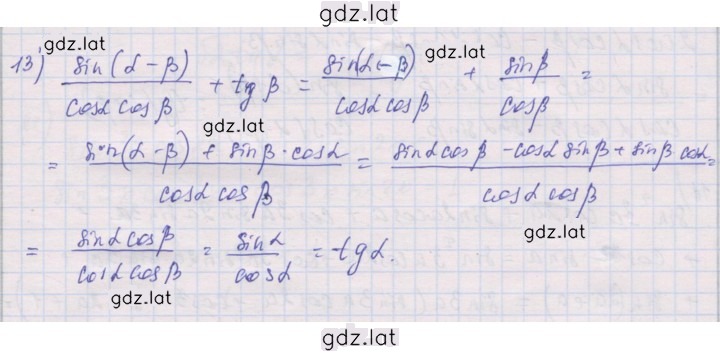 gdz.lat
gdz.lat
gdz.lat
13) sin(α-β)/cosα cosβ + tg β = sin(α-β)/cosα cosβ + sinβ/cosβ =
gdz.lat
= sin(α-β) + sinβ·cosα/cosα cosβ = sinα cosβ - cosα sinβ + sinβ cosα/cosα cosβ =
gdz.lat
= sinα cosβ/cosα cosβ = sinα/cosα = tgα
gdz.lat
gdz.lat